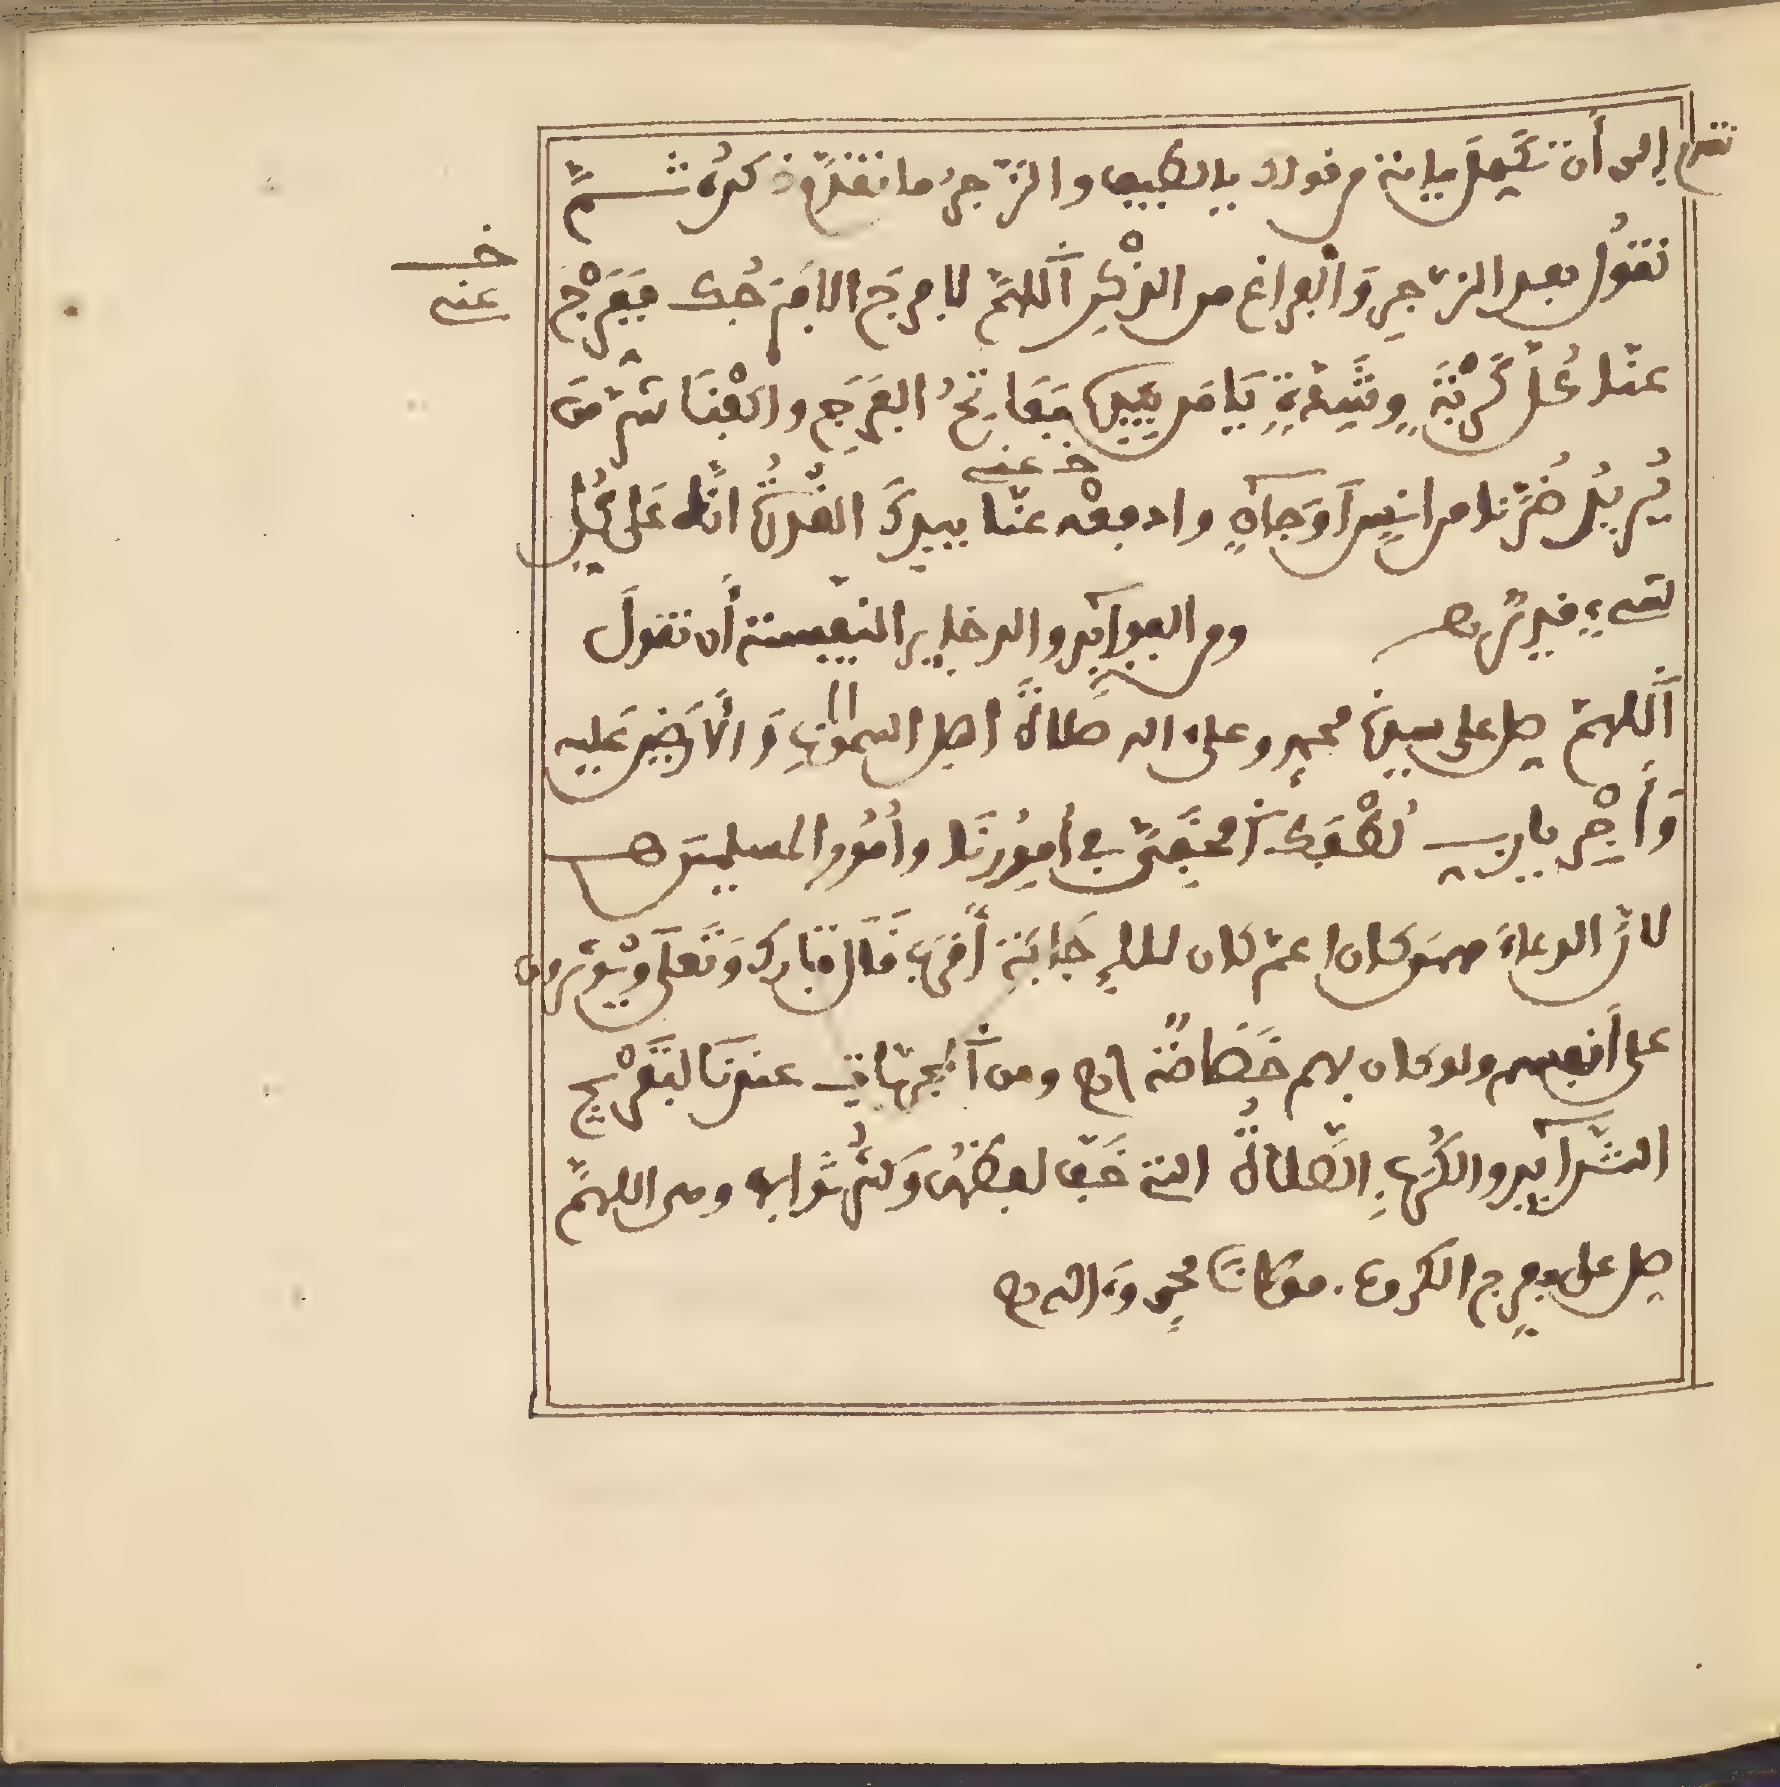 إلى أن تكمل ماية من قولك يا لطيف والزجر ما تقدم ذكره ثم
تقول بعد الزجر والفراغ من الذكر اللهم لا فرج إلا فرجك ففرج
خـ
عنى
عنا كل كربة وشدة يا من بيده مفاتح الفرج واكفنا شر من
خـ عنى
يريد ضرنا من إنس أو جان وادفعه عنا بيدك القوية إنك على كل
شىء قدير اهـ ومن الفوائد والدخاير النفيسة أن تقول
اللهم صل على سيدنا محمد وعلى اله صلاة أهل السموات والأرضين عليه
وأجر يا رب لطفك الخفى فى أمورنا وأمور المسلمين اهـ
لأن الدعاء مهمى كان اعم كان للإجابة أقرب قال تبارك وتعلى ويوثرون
على أنفسهم ولو كان بهم خصاصة اهـ ومن المجربات عندنا لتفريج
الشدايد والكرب الصلاة التى خف لفظها وكثر ثوابها وهى اللهم
صل على مفرج الكروب مولانا محمد واله اهـ